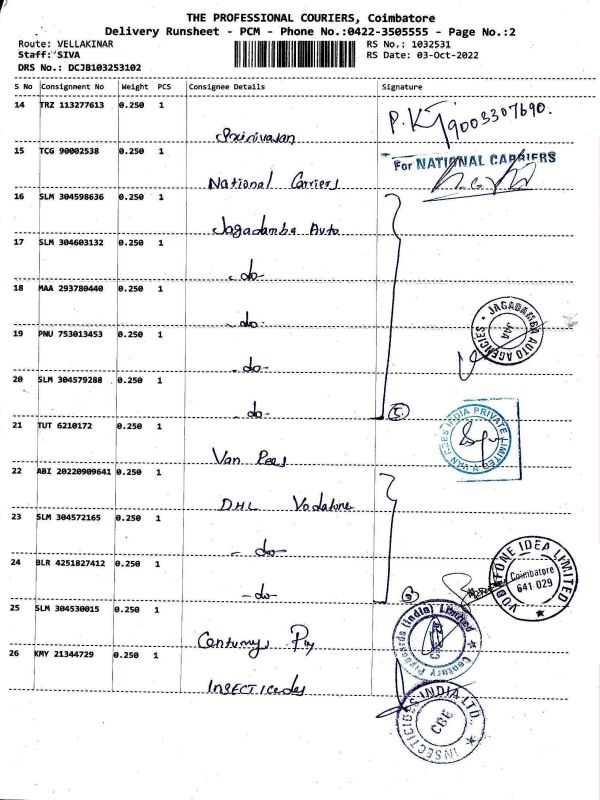 THE PROFESSIONAL COURIERS, Coimbatore
Delivery Runsheet - PCM - Phone No.:0422-3505555 - Page No.:2
Route: VELLAKINAR RS No.: 1032531
Staff: SIVA RS Date: 03-Oct-2022
DRS No.: DCJB103253102
S No Consignment No Weight PCS Consignee Details Signature
14 TRZ 113277613 0.250 1
P.K 9003307690.
Srinivasan
15 TCG 90002538 0.250 1
For NATIONAL CARRIERS
National Carriers
16 SLM 304598636 0.250 1
Jagadamba Auto
17 SLM 304603132 0.250 1
-do-
18 MAA 293780440 0.250 1
-do-
JAGADAMBA AUTO AGENCIES
JAA
19 PNU 753013453 0.250 1
-do-
20 SLM 304579288 0.250 1
-do- 5
21 TUT 6210172 0.250 1
VAN REES INDIA PRIVATE LIMITED
Van Rees
22 ABI 20220909641 0.250 1
DHL Vodafone
23 SLM 304572165 0.250 1
-do-
24 BLR 4251827412 0.250 1
VODAFONE IDEA LIMITED
Coimbatore
641 029
-do- 3
25 SLM 304530015 0.250 1
Century Plyboards (India) Limited
Century Ply
26 KMY 21344729 0.250 1
Insecticides
INSECTICIDES INDIA LTD.
CBE